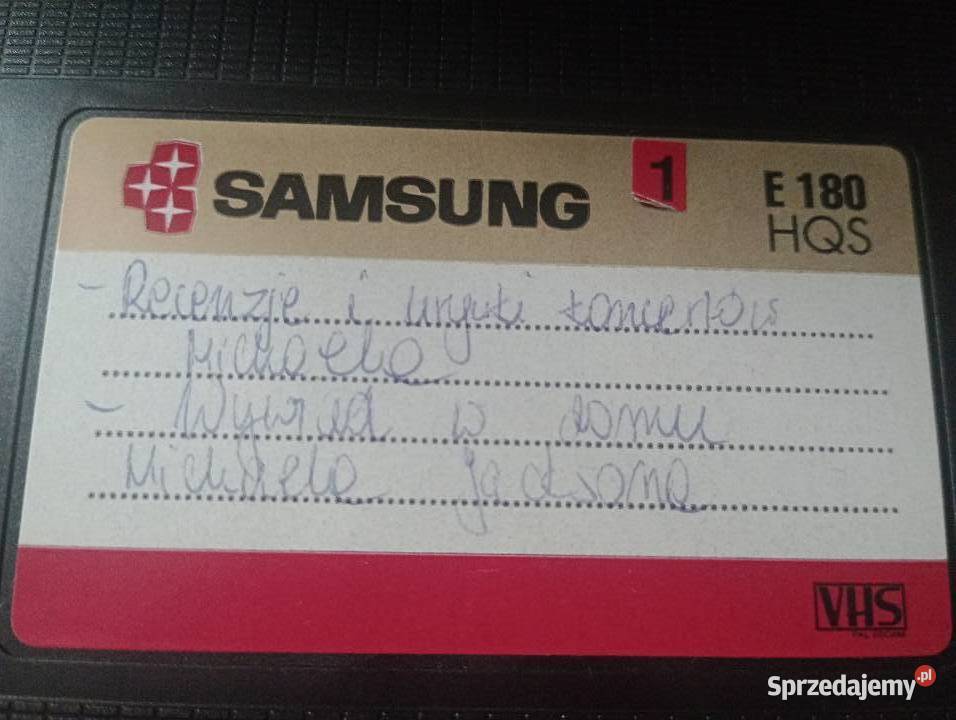 SAMSUNG
1
E 180
HQS
- Recenzje i urywki koncertów
Michaela
- Wywiad w domu
Michaela Jacksona
VHS
PAL SECAM
Sprzedajemy.pl